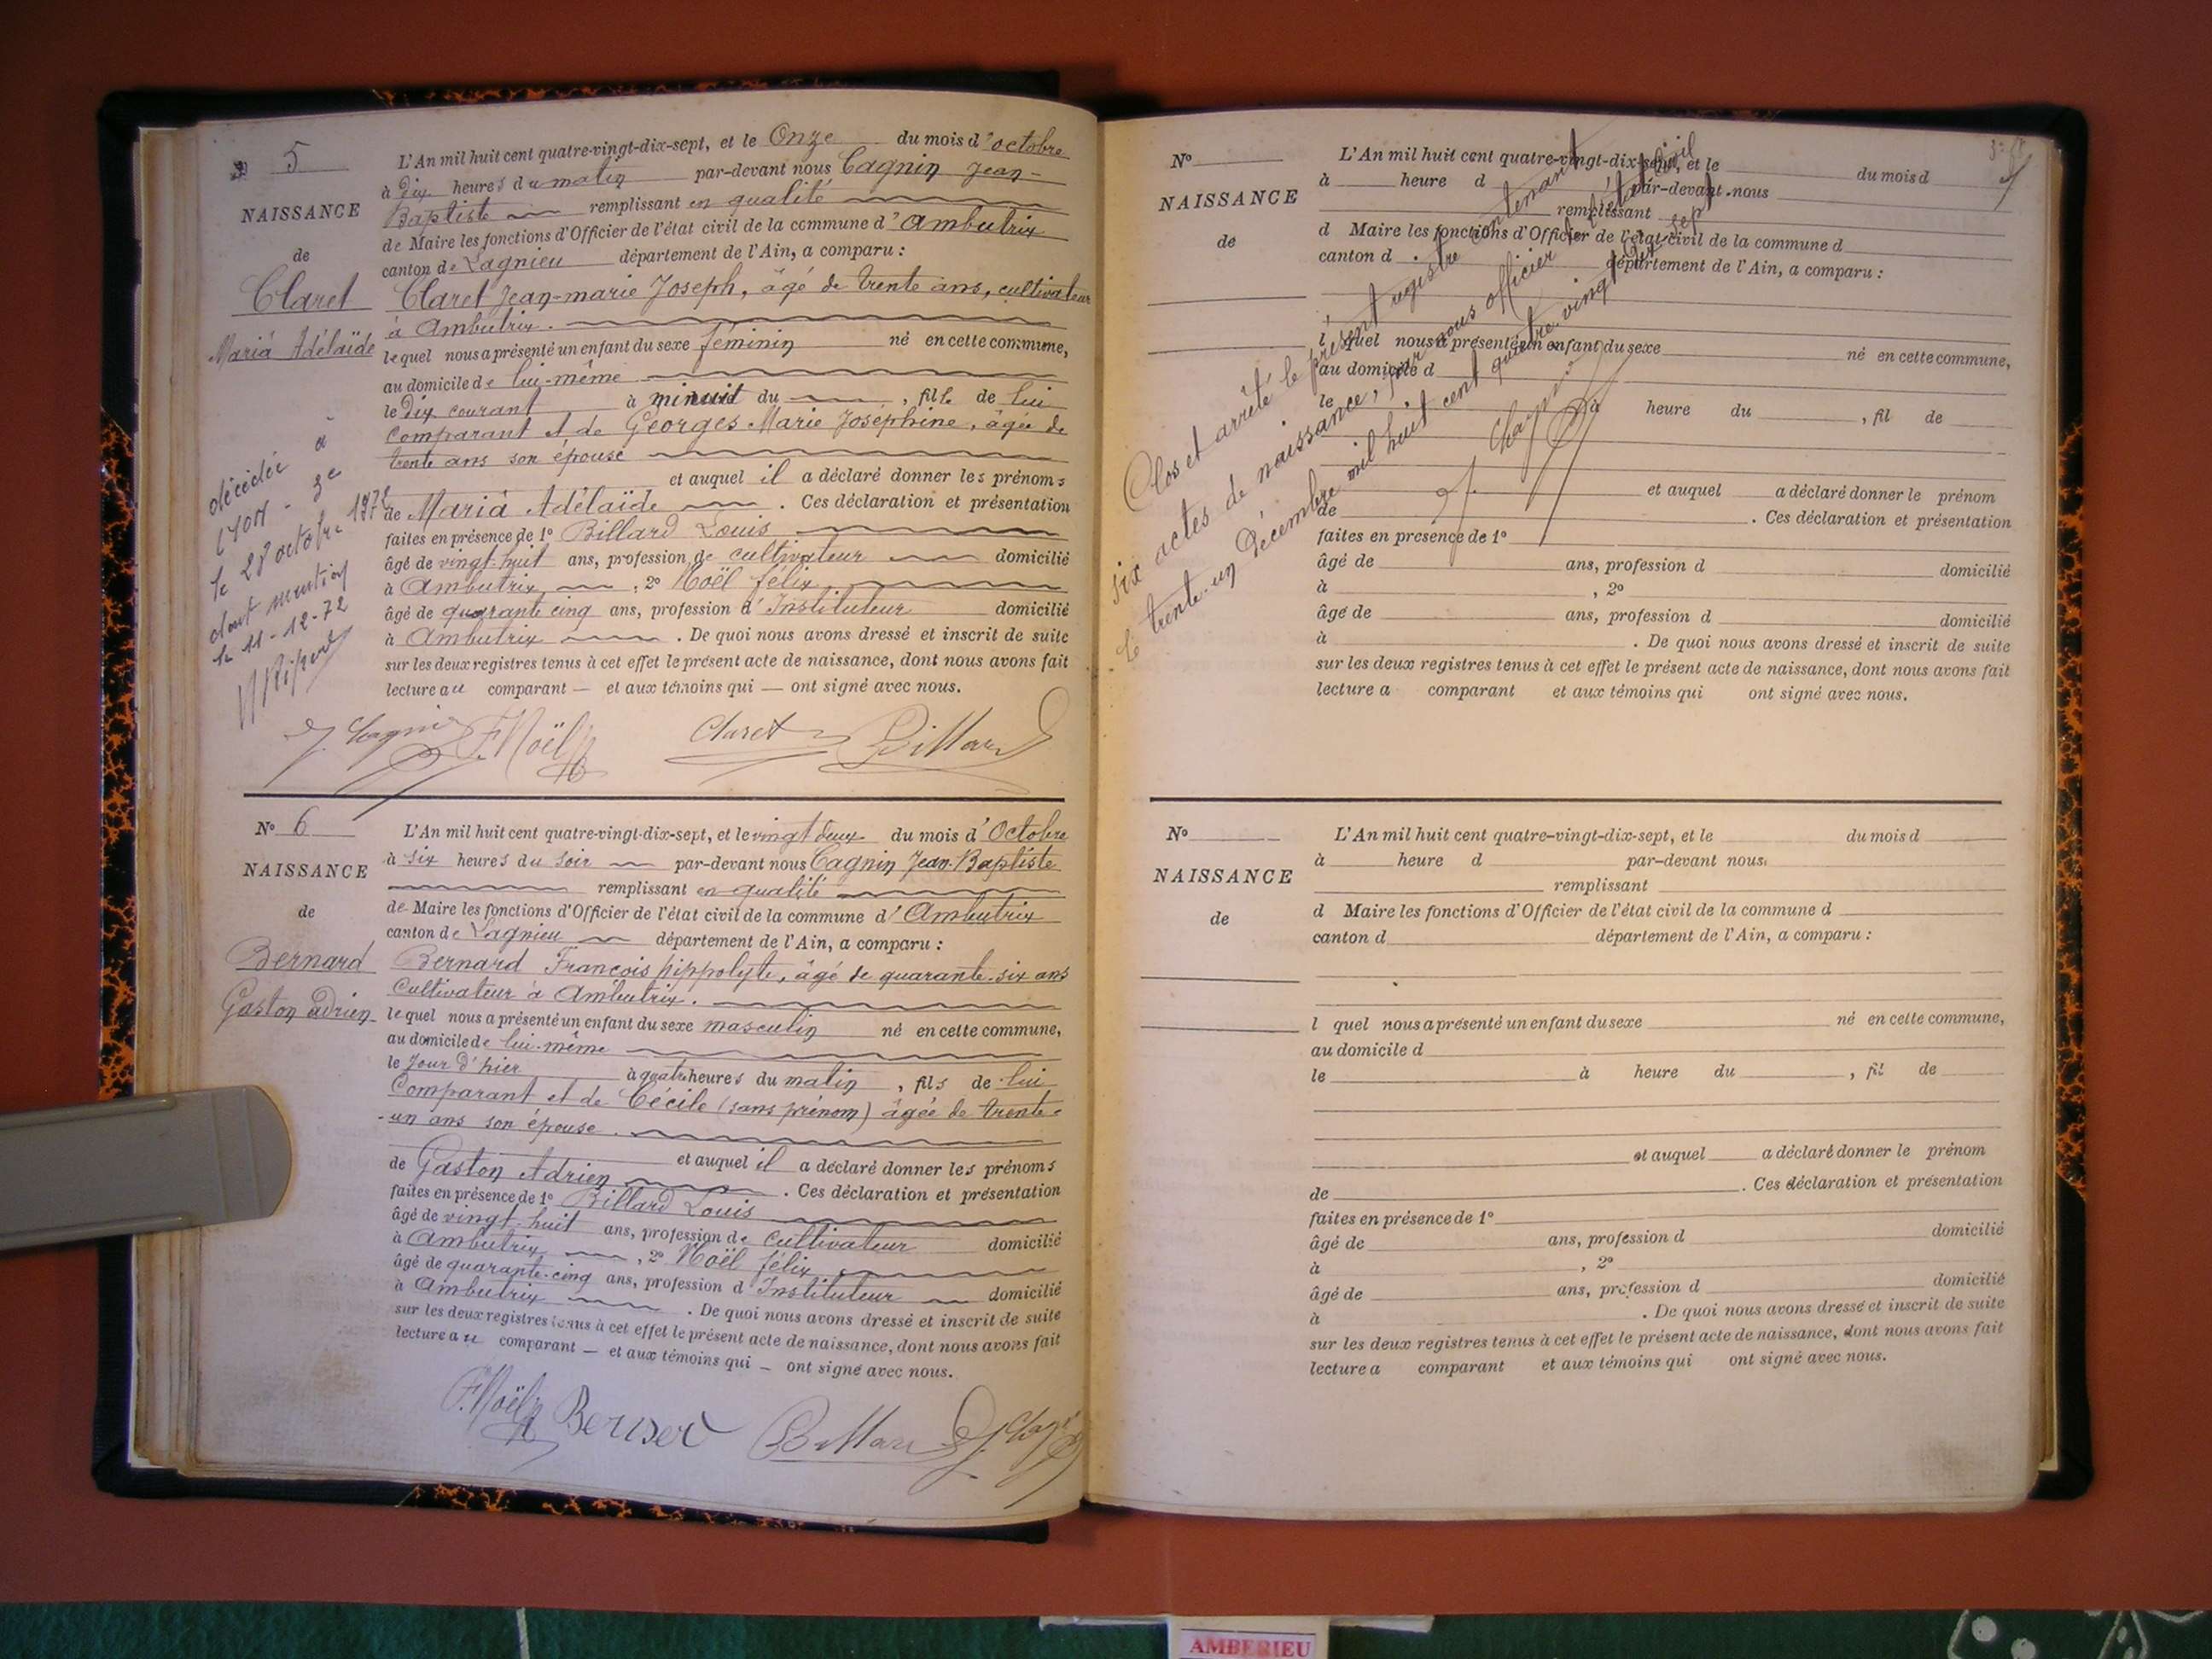 5
NAISSANCE
de
Claret
Mariá Adélaïde
décédée à
LYON - 3e
le 28 octobre 1972
dont mention
le 11-12-72
L'An mil huit cent quatre-vingt-dix-sept, et le Onze du mois d'octobre
à dix heures du matin par-devant nous Cagnin Jean-
Baptiste remplissant en qualité
de Maire les fonctions d'Officier de l'état civil de la commune d'Ambutrix
canton de Lagnieu département de l'Ain, a comparu :
Claret Jean-marie Joseph, âgé de trente ans, cultivateur
à Ambutrix.
lequel nous a présenté un enfant du sexe féminin né en cette commune,
au domicile de lui-même
le dix courant à minuit du , fille de lui
Comparant et de Georges Marie Joséphine, âgée de
trente ans son épouse
et auquel il a déclaré donner les prénoms
de Mariá Adélaïde . Ces déclaration et présentation
faites en présence de 1° Billard Louis
âgé de vingt-huit ans, profession de cultivateur domicilié
à Ambutrix , 2° Noël félix
âgé de quarante cinq ans, profession d'Instituteur domicilié
à Ambutrix . De quoi nous avons dressé et inscrit de suite
sur les deux registres tenus à cet effet le présent acte de naissance, dont nous avons fait
lecture au comparant — et aux témoins qui — ont signé avec nous.
J. Cagnin F. Noël Claret Billard
N° 6
NAISSANCE
de
Bernard
Gaston Adrien
L'An mil huit cent quatre-vingt-dix-sept, et le vingt deux du mois d'Octobre
à six heures du soir par-devant nous Cagnin Jean-Baptiste
remplissant en qualité
de Maire les fonctions d'Officier de l'état civil de la commune d'Ambutrix
canton de Lagnieu département de l'Ain, a comparu :
Bernard François hippolyte, âgé de quarante-six ans
Cultivateur à Ambutrix.
lequel nous a présenté un enfant du sexe masculin né en cette commune,
au domicile de lui-même
le Jour d'hier à quatre heures du matin , fils de lui
Comparant et de Cécile (sans prénom) âgée de trente-
-un ans son épouse.
et auquel il a déclaré donner les prénoms
de Gaston Adrien . Ces déclaration et présentation
faites en présence de 1° Billard Louis
âgé de vingt-huit ans, profession de Cultivateur domicilié
à Ambutrix , 2° Noël félix
âgé de quarante-cinq ans, profession d'Instituteur domicilié
à Ambutrix . De quoi nous avons dressé et inscrit de suite
sur les deux registres tenus à cet effet le présent acte de naissance, dont nous avons fait
lecture au comparant — et aux témoins qui — ont signé avec nous.
F. Noël Bernard Billard
N°
NAISSANCE
de
L'An mil huit cent quatre-vingt-dix-sept, et le du mois d
à heure d par-devant nous
remplissant
d Maire les fonctions d'Officier de l'état civil de la commune d
canton d département de l'Ain, a comparu :
l quel nous a présenté un enfant du sexe né en cette commune,
au domicile d
le à heure du , fil de
et auquel a déclaré donner le prénom
de . Ces déclaration et présentation
faites en présence de 1°
âgé de ans, profession d domicilié
à , 2°
âgé de ans, profession d domicilié
à . De quoi nous avons dressé et inscrit de suite
sur les deux registres tenus à cet effet le présent acte de naissance, dont nous avons fait
lecture a comparant et aux témoins qui ont signé avec nous.
Clos et arrêté le présent registre contenant
six actes de naissance, par nous officier de l'état civil
le trente-un Décembre mil huit cent quatre-vingt-dix-sept
N°
NAISSANCE
de
L'An mil huit cent quatre-vingt-dix-sept, et le du mois d
à heure d par-devant nous
remplissant
d Maire les fonctions d'Officier de l'état civil de la commune d
canton d département de l'Ain, a comparu :
l quel nous a présenté un enfant du sexe né en cette commune,
au domicile d
le à heure du , fil de
et auquel a déclaré donner le prénom
de . Ces déclaration et présentation
faites en présence de 1°
âgé de ans, profession d domicilié
à , 2°
âgé de ans, profession d domicilié
à . De quoi nous avons dressé et inscrit de suite
sur les deux registres tenus à cet effet le présent acte de naissance, dont nous avons fait
lecture a comparant et aux témoins qui ont signé avec nous.
AMBERIEU